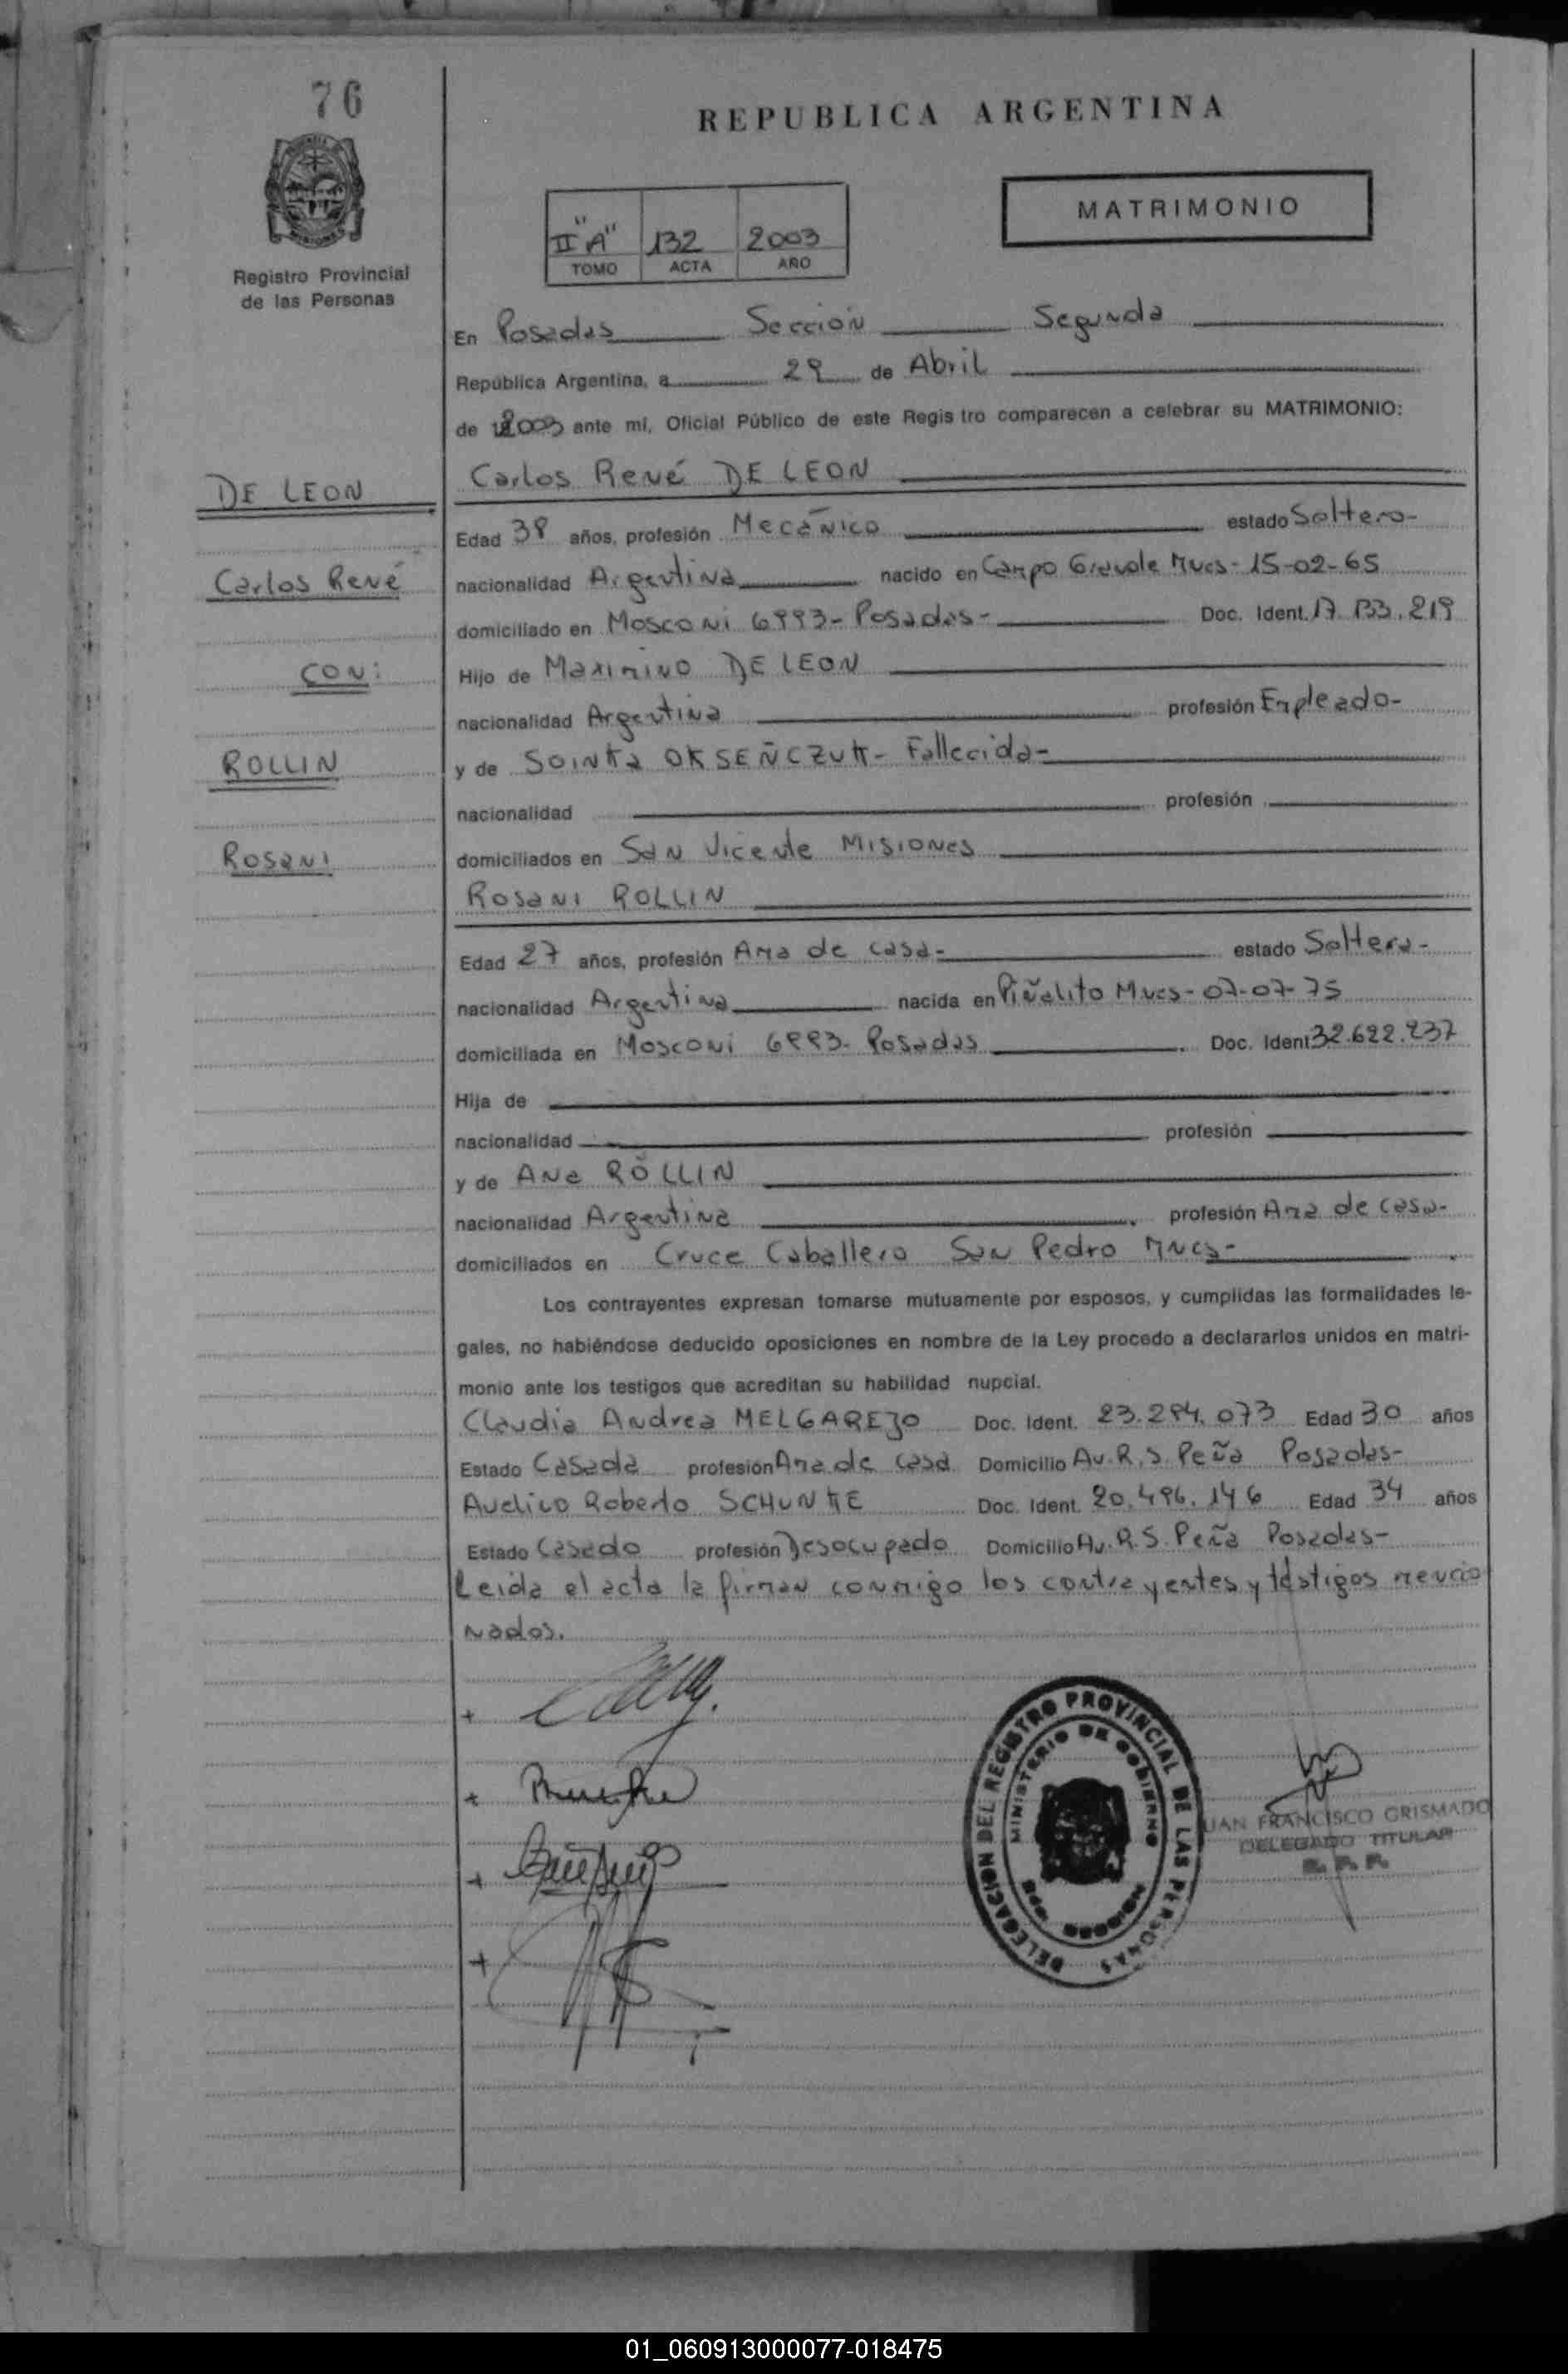 76
REPUBLICA ARGENTINA
MATRIMONIO
II "A" 132 2003
TOMO ACTA AÑO
Registro Provincial
de las Personas
En Posadas Sección Segunda
República Argentina, a 29 de Abril
de 2003 ante mí, Oficial Público de este Registro comparecen a celebrar su MATRIMONIO:
Carlos René DE LEON
DE LEON
Edad 38 años, profesión Mecánico estado Soltero-
Carlos René
nacionalidad Argentina nacido en Campo Grande Mnes- 15-02-65
domiciliado en Mosconi 6993- Posadas- Doc. Ident. 17.133.219
CON:
Hijo de Maximino DE LEON
nacionalidad Argentina profesión Empleado-
ROLLIN
y de SOINKA OKSEÑCZUK- Fallecida-
nacionalidad profesión
Rosani
domiciliados en San Vicente Misiones
Rosani ROLLIN
Edad 27 años, profesión Ama de casa- estado Soltera-
nacionalidad Argentina nacida en Piñalito Mnes- 07-07-75
domiciliada en Mosconi 6993- Posadas Doc. Ident 32.622.237
Hija de
nacionalidad profesión
y de Ana ROLLIN
nacionalidad Argentina profesión Ama de casa-
domiciliados en Cruce Caballero San Pedro Mnes-
Los contrayentes expresan tomarse mutuamente por esposos, y cumplidas las formalidades le-
gales, no habiéndose deducido oposiciones en nombre de la Ley procedo a declararlos unidos en matri-
monio ante los testigos que acreditan su habilidad nupcial.
Claudia Andrea MELGAREJO Doc. Ident. 23.294.073 Edad 30 años
Estado Casada profesión Ama de casa Domicilio Av. R. S. Peña Posadas-
Avelino Roberto SCHUNKE Doc. Ident. 20.496.146 Edad 34 años
Estado Casado profesión Desocupado Domicilio Av. R. S. Peña Posadas-
Leida el acta la firman conmigo los contrayentes y testigos mencio
nados.
DELEGACION DEL REGISTRO PROVINCIAL DE LAS PERSONAS
MINISTERIO DE GOBIERNO
JUAN FRANCISCO GRISMADO
DELEGADO TITULAR
R. P. P.
01_060913000077-018475